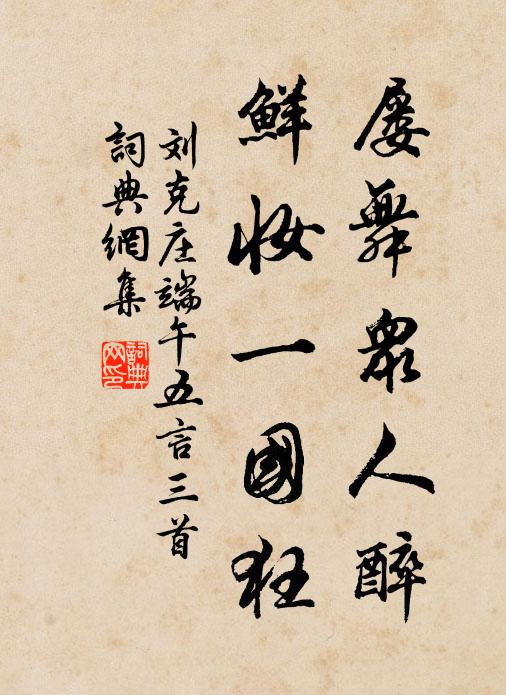 屡舞衆人醉
鮮妆一國狂
刘克庄端午五言三首
詞典網集
詞典网印